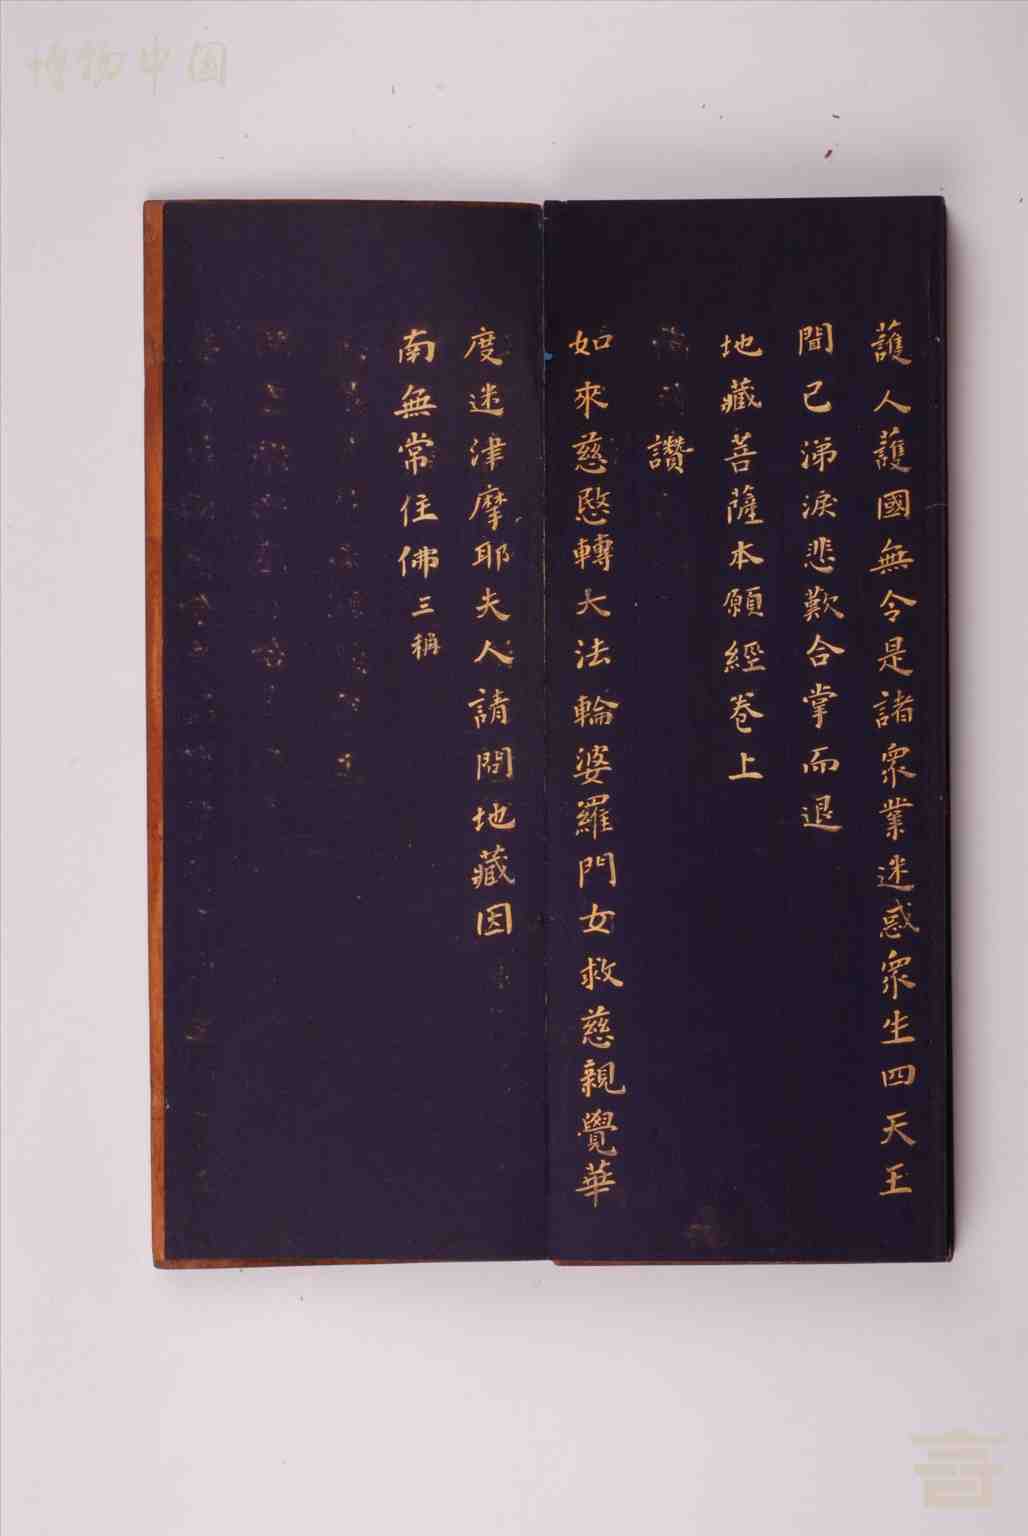 護人護國無令是諸衆業迷惑衆生四天王
聞已涕淚悲歎合掌而退
地藏菩薩本願經卷上
讚
如來慈愍轉大法輪婆羅門女救慈親覺華
度迷津摩耶夫人請問地藏因
南無常住佛三稱
博物中国